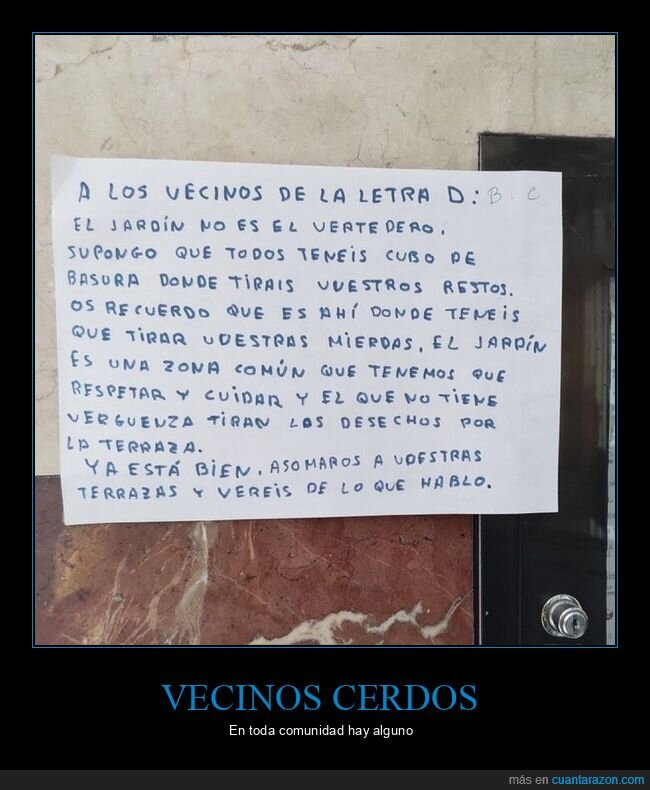 A LOS VECINOS DE LA LETRA D: B - C
EL JARDÍN NO ES EL VERTEDERO.
SUPONGO QUE TODOS TENEIS CUBO DE
BASURA DONDE TIRAIS VUESTROS RESTOS.
OS RECUERDO QUE ES AHÍ DONDE TENEIS
QUE TIRAR VUESTRAS MIERDAS. EL JARDÍN
ES UNA ZONA COMÚN QUE TENEMOS QUE
RESPETAR Y CUIDAR Y EL QUE NO TIENE
VERGUENZA TIRAN LOS DESECHOS POR
LA TERRAZA.
YA ESTÁ BIEN, ASOMAROS A VUESTRAS
TERRAZAS Y VEREIS DE LO QUE HABLO.
VECINOS CERDOS
En toda comunidad hay alguno
más en cuantarazon.com